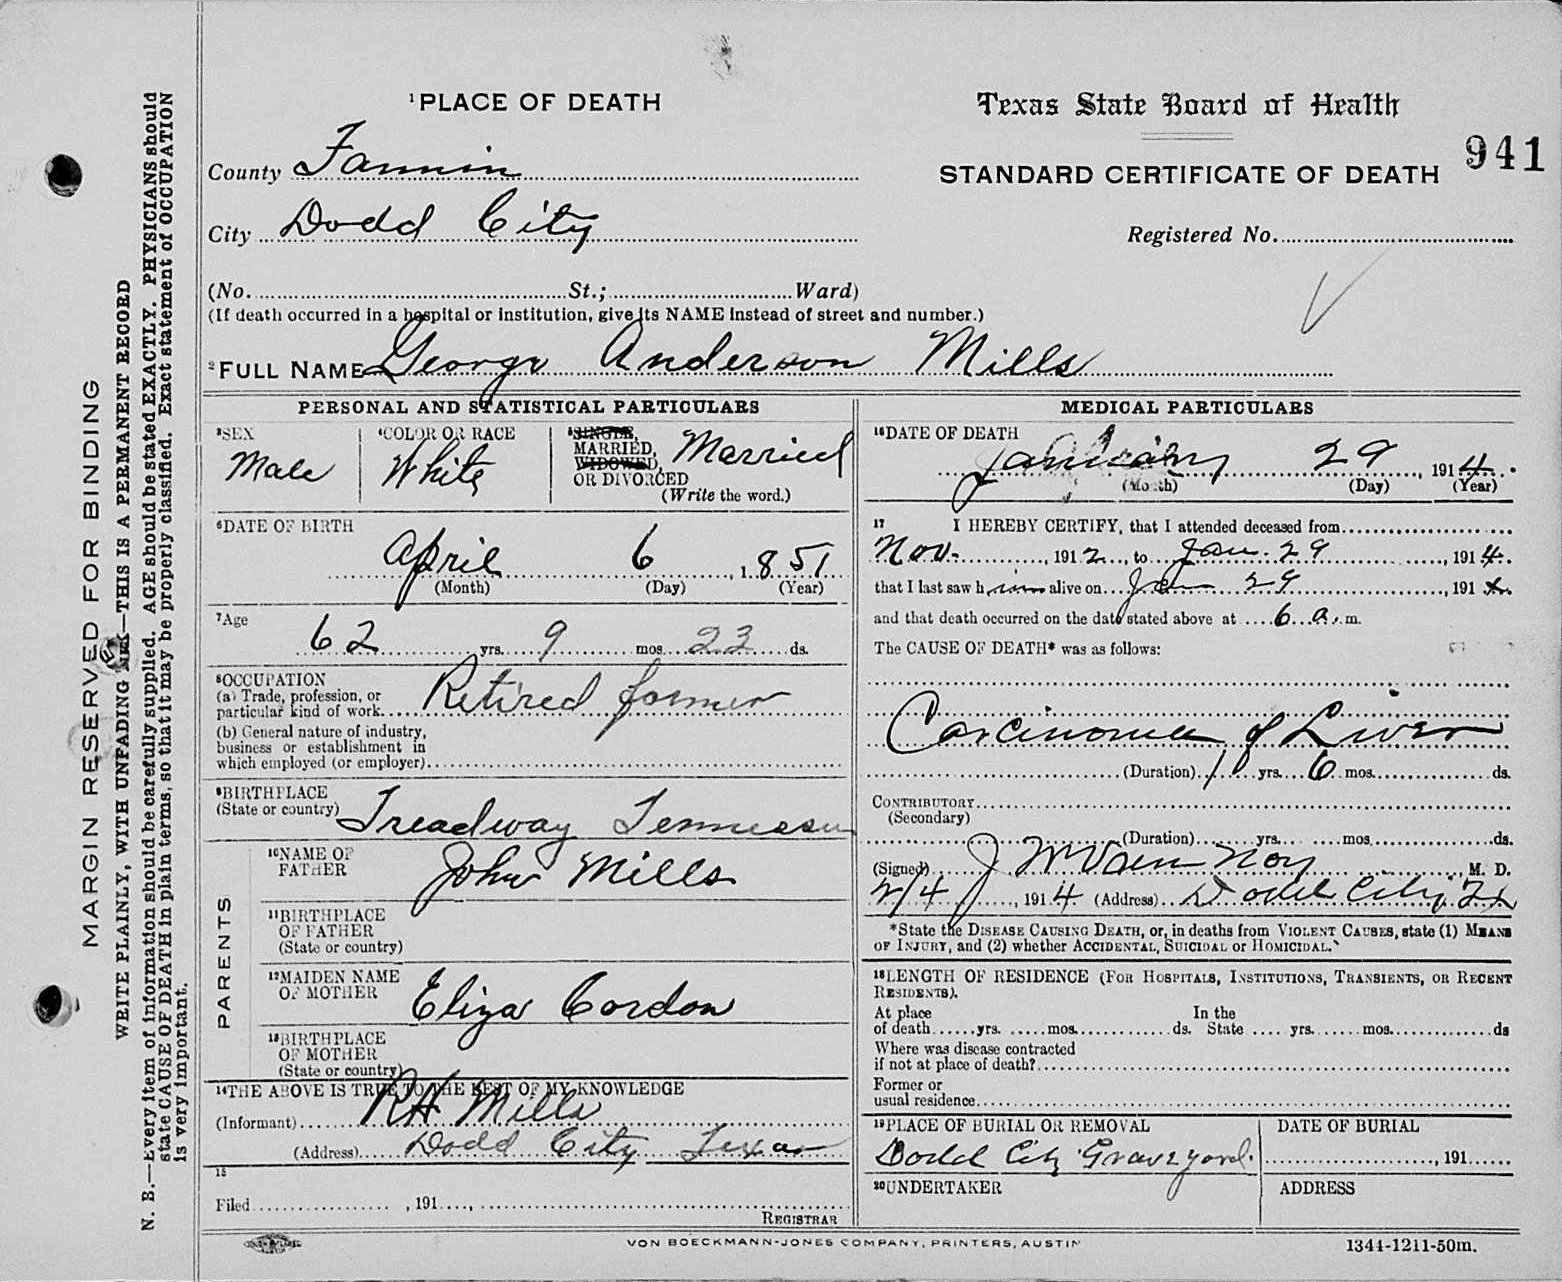 ¹PLACE OF DEATH
County Fannin
City Dodd City
(No. St.; Ward)
(If death occurred in a hospital or institution, give its NAME instead of street and number.)
²FULL NAME George Anderson Mills
Texas State Board of Health
STANDARD CERTIFICATE OF DEATH 941
Registered No.
PERSONAL AND STATISTICAL PARTICULARS
³SEX
Male
⁴COLOR OR RACE
White
⁵SINGLE,
MARRIED,
WIDOWED,
OR DIVORCED
Married
(Write the word.)
⁶DATE OF BIRTH
April 6, 1851
(Month) (Day) (Year)
⁷Age
62 yrs. 9 mos. 23 ds.
⁸OCCUPATION
(a) Trade, profession, or
particular kind of work Retired farmer
(b) General nature of industry,
business or establishment in
which employed (or employer)
⁹BIRTHPLACE
(State or country) Treadway Tennessee
PARENTS
¹⁰NAME OF
FATHER John Mills
¹¹BIRTHPLACE
OF FATHER
(State or country)
¹²MAIDEN NAME
OF MOTHER Eliza Cordon
¹³BIRTHPLACE
OF MOTHER
(State or country)
¹⁴THE ABOVE IS TRUE TO THE BEST OF MY KNOWLEDGE
(Informant) RH Mills
(Address) Dodd City Texas
15
Filed , 191 ,
REGISTRAR
MEDICAL PARTICULARS
¹⁶DATE OF DEATH
January 29, 1914.
(Month) (Day) (Year)
17 I HEREBY CERTIFY, that I attended deceased from
Nov. , 1912, to Jan. 29, 1914.
that I last saw him alive on Jan 29, 1914.
and that death occurred on the date stated above at 6 a.m.
The CAUSE OF DEATH* was as follows:
Carcinoma of Liver
(Duration) 1 yrs. 6 mos. ds.
CONTRIBUTORY
(Secondary)
(Duration) yrs. mos. ds.
(Signed) J W Van Noy, M. D.
2/4, 1914 (Address) Dodd City Tx
*State the DISEASE CAUSING DEATH, or, in deaths from VIOLENT CAUSES, state (1) MEANS
OF INJURY, and (2) whether ACCIDENTAL, SUICIDAL or HOMICIDAL.
¹⁸LENGTH OF RESIDENCE (FOR HOSPITALS, INSTITUTIONS, TRANSIENTS, OR RECENT
RESIDENTS).
At place In the
of death yrs. mos. ds. State yrs. mos. ds
Where was disease contracted
if not at place of death?
Former or
usual residence
¹⁹PLACE OF BURIAL OR REMOVAL
Dodd City Graveyard.
DATE OF BURIAL
, 191
²⁰UNDERTAKER
ADDRESS
VON BOECKMANN-JONES COMPANY, PRINTERS, AUSTIN
1344-1211-50m.
MARGIN RESERVED FOR BINDING
WRITE PLAINLY, WITH UNFADING INK—THIS IS A PERMANENT RECORD
N. B.—Every item of information should be carefully supplied. AGE should be stated EXACTLY. PHYSICIANS should
state CAUSE OF DEATH in plain terms, so that it may be properly classified. Exact statement of OCCUPATION
is very important.